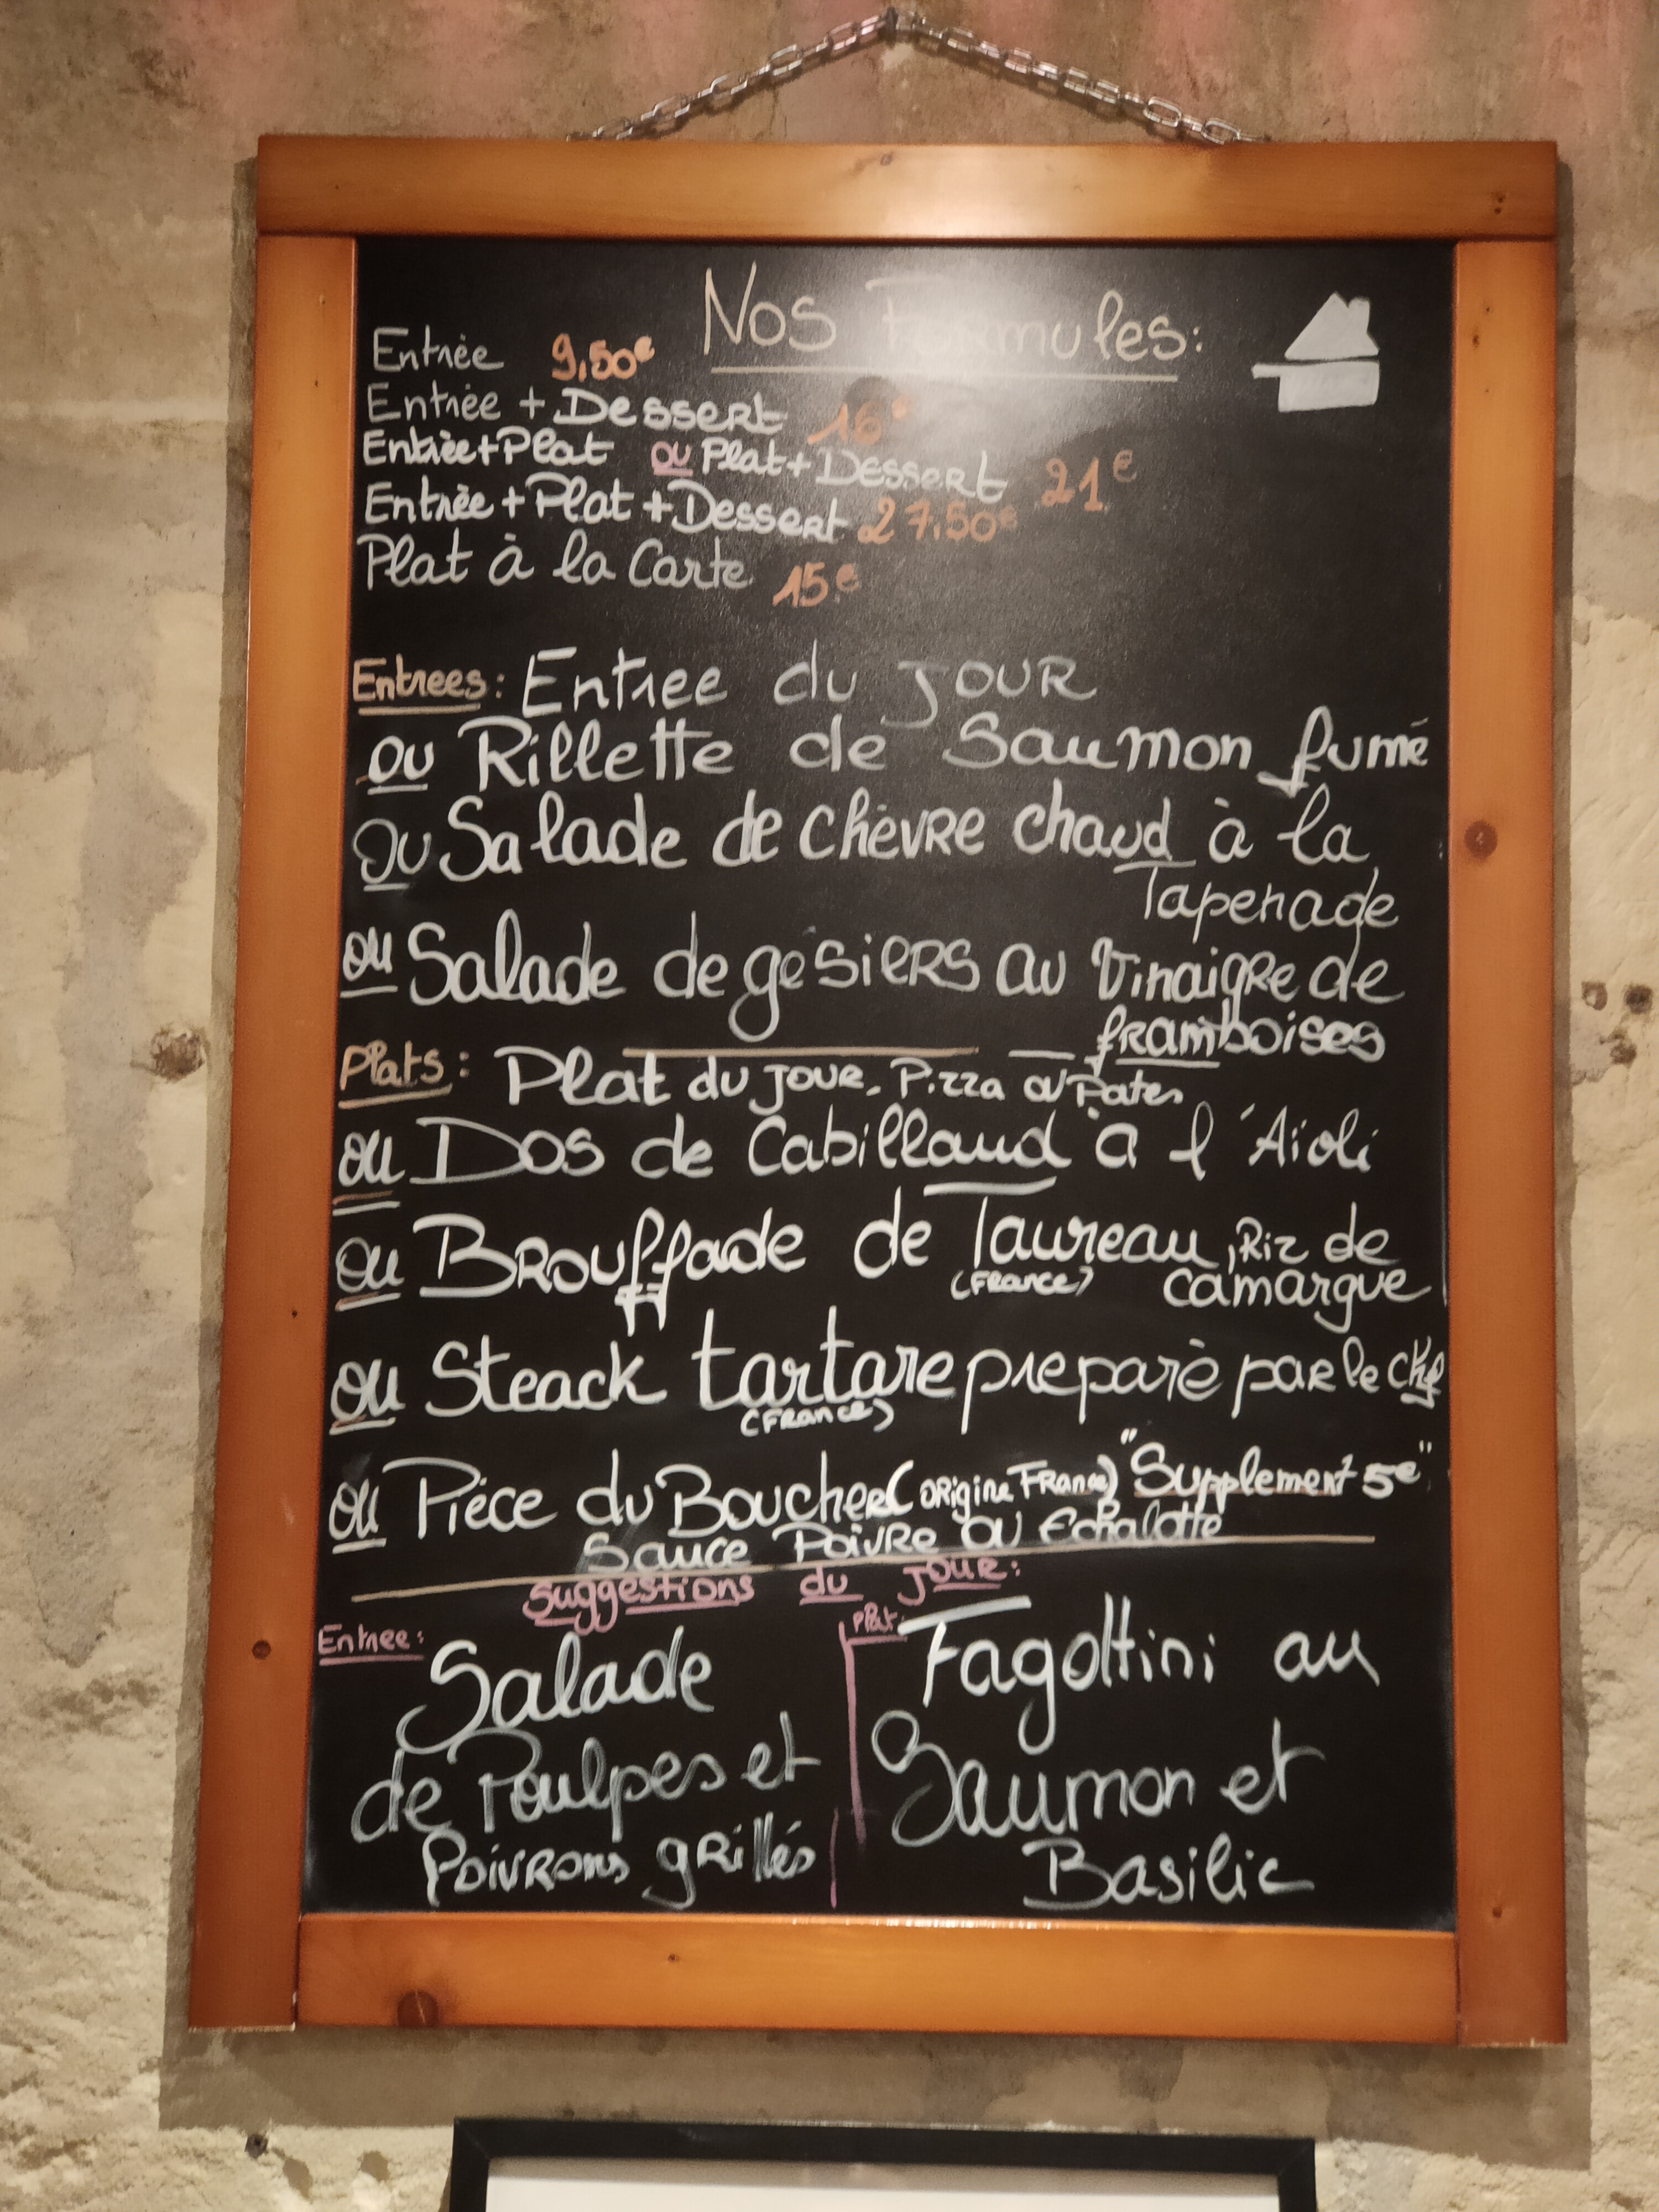 Nos Formules:
Entrée 9,50€
Entrée + Dessert 16€
Entrée+Plat ou Plat+Dessert 21€
Entrée+Plat+Dessert 27,50€
Plat à la Carte 15€
Entrees: Entree du jour
ou Rillette de Saumon fumé
ou Salade de chèvre chaud à la
Tapenade
ou Salade de gésiers au Vinaigre de
framboises
Plats: Plat du jour, Pizza ou Pates
ou Dos de Cabillaud à l'Aïoli
ou Brouffade de Taureau, Riz de
(France) camargue
ou Steack tartare preparè par le chef
(France)
ou Pièce du Boucher (origine France) "Supplement 5€"
Sauce Poivre ou Echalotte
Suggestions du jour:
Entree:
Salade
de Poulpes et
Poivrons grillés
Plat:
Fagottini au
Saumon et
Basilic